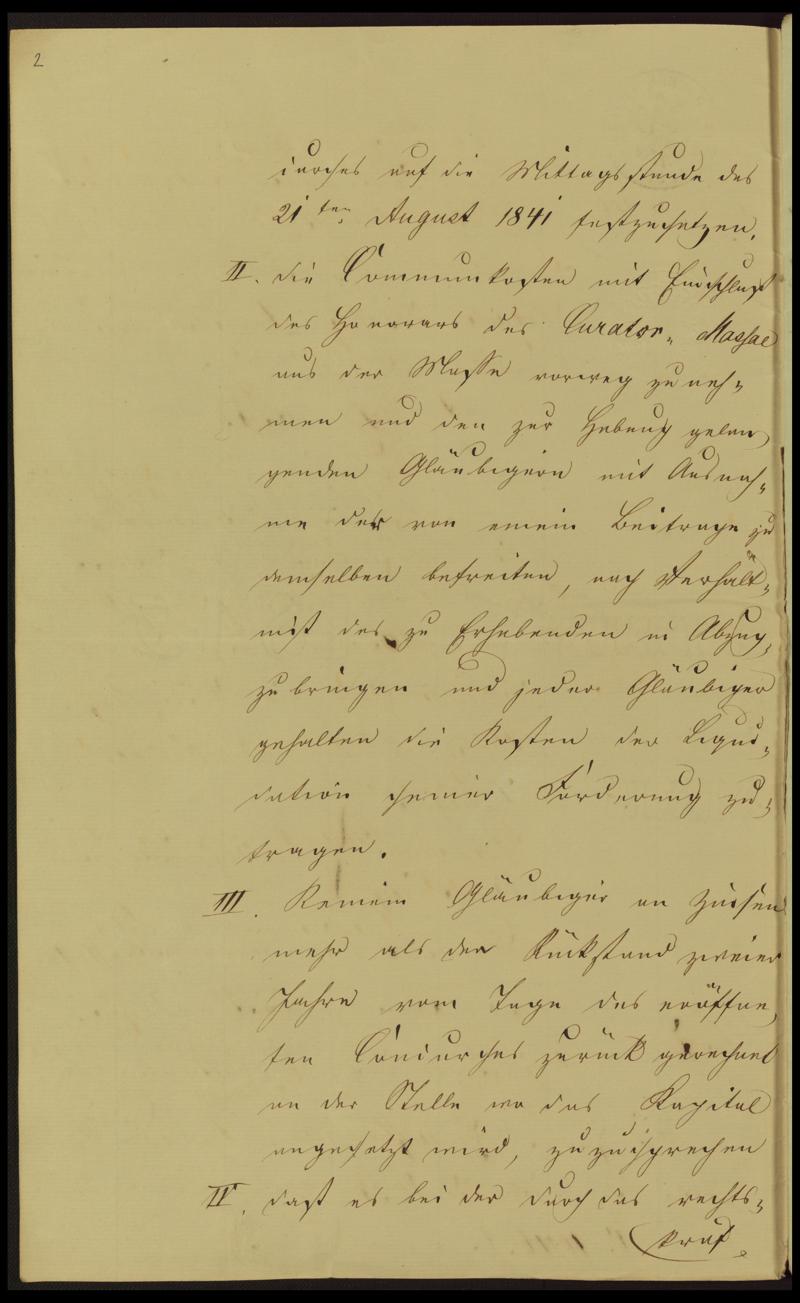 2
curses auf die Mittagsstunde des
21ten August 1841 festzusetzen.
II. die Communkosten mit Einschluß
des Honorars des Curator. Massae
aus der Masse vorweg zu neh=
men und den zur Hebung gelan=
genden Gläubigern mit Ausnah=
me der von einem Beitrage zu
demselben befreiten, nach Verhält=
niß des zu Erhebenden in Abzug
zu bringen und jeder Gläubiger
gehalten die Kosten der Liqui=
dation seiner Forderung zu
tragen.
III. Keinem Gläubiger an Zinsen
mehr als den Rückstand zweier
Jahre vom Tage des eröffne=
ten Concurses zurück gerechnet
an der Stelle wo das Kapital
angesetzt wird, zuzusprechen
IV. daß es bei der durch das rechts=
kräf=